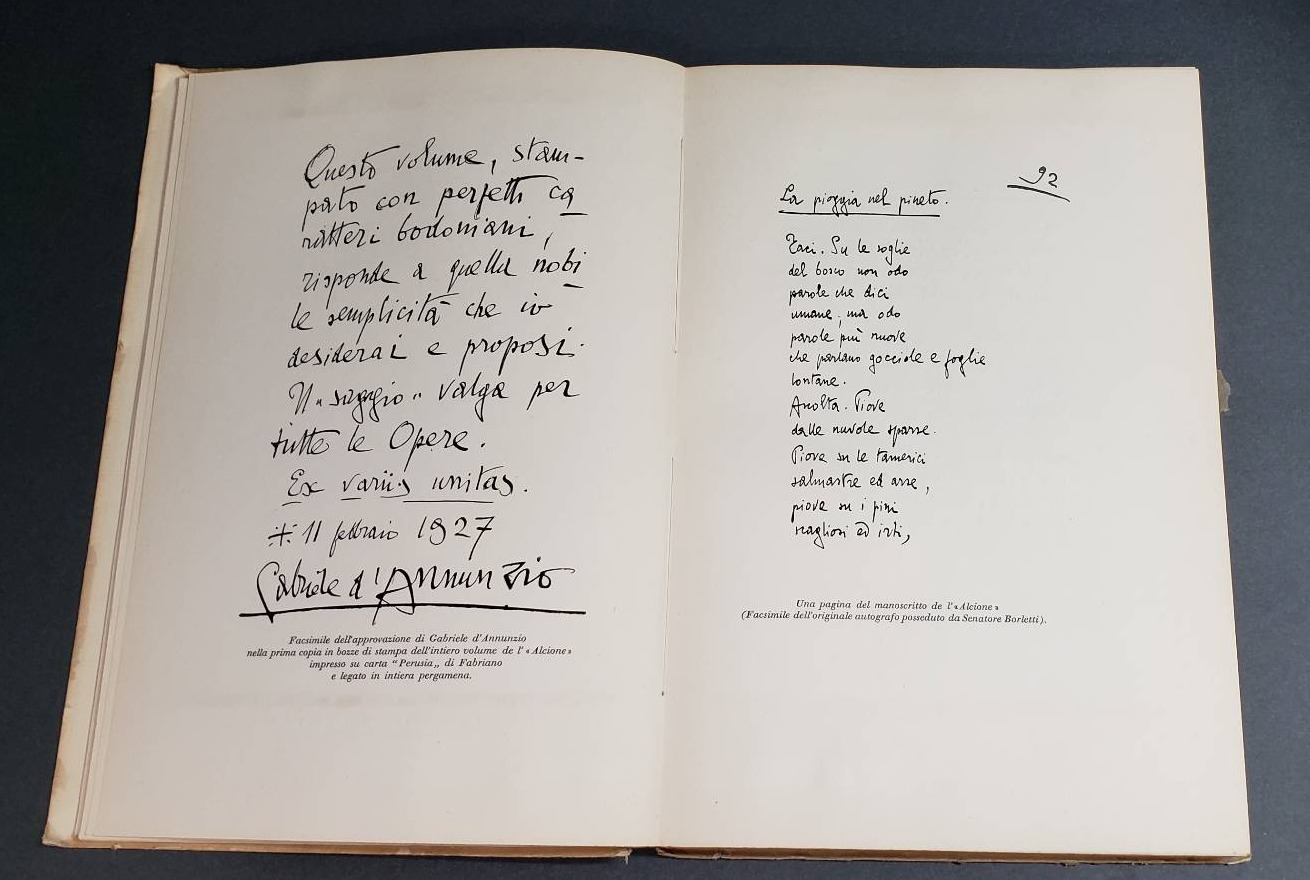 Questo volume, stam-
pato con perfetti ca
ratteri bodoniani,
risponde a quella nobi
le semplicità che io
desiderai e proposi.
Il «saggio» valga per
tutte le Opere.
Ex variis unitas.
11 febbraio 1927
Gabriele d'Annunzio
Facsimile dell'approvazione di Gabriele d'Annunzio
nella prima copia in bozze di stampa dell'intiero volume de l' «Alcione»
impresso su carta “Perusia„ di Fabriano
e legato in intiera pergamena.
92
La pioggia nel pineto.
Taci. Su le soglie
del bosco non odo
parole che dici
umane; ma odo
parole più nuove
che parlano gocciole e foglie
lontane.
Ascolta. Piove
dalle nuvole sparse.
Piove su le tamerici
salmastre ed arse,
piove su i pini
scagliosi ed irti,
Una pagina del manoscritto de l'«Alcione»
(Facsimile dell'originale autografo posseduto da Senatore Borletti).